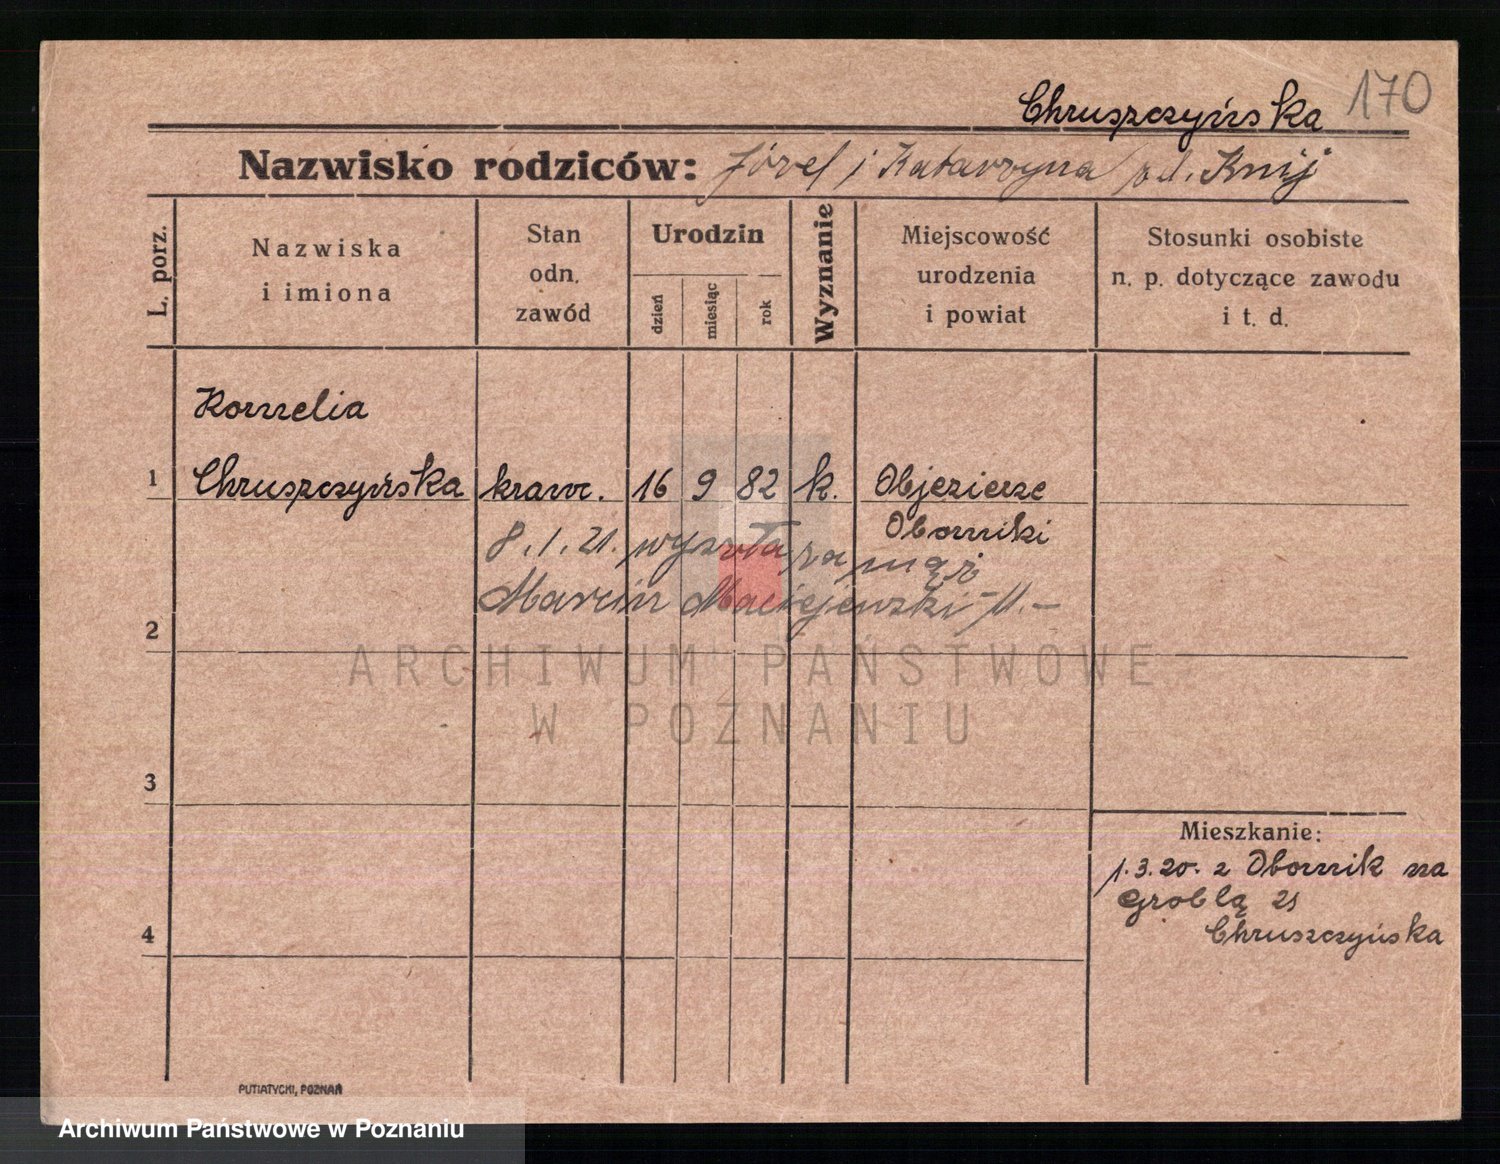 Chruszczyńska 170
Nazwisko rodziców: Józef i Katarzyna
L. porz.
Nazwiska
i imiona
Stan
odn.
zawód
Urodzin
dzień
miesiąc
rok
Wyznanie
Miejscowość
urodzenia
i powiat
Stosunki osobiste
n. p. dotyczące zawodu
i t. d.
Kornelia
1 Chruszczyńska kraw. 16 9 82 k. Objezierze
Oborniki
8.1.21. wyszła za mąż
Marcin Maciejewski
2
ARCHIWUM PAŃSTWOWE
W POZNANIU
3
Mieszkanie:
1.3.20. z Obornik na
Groblą 21
Chruszczyńska
4
PUTIATYCKI, POZNAŃ
Archiwum Państwowe w Poznaniu